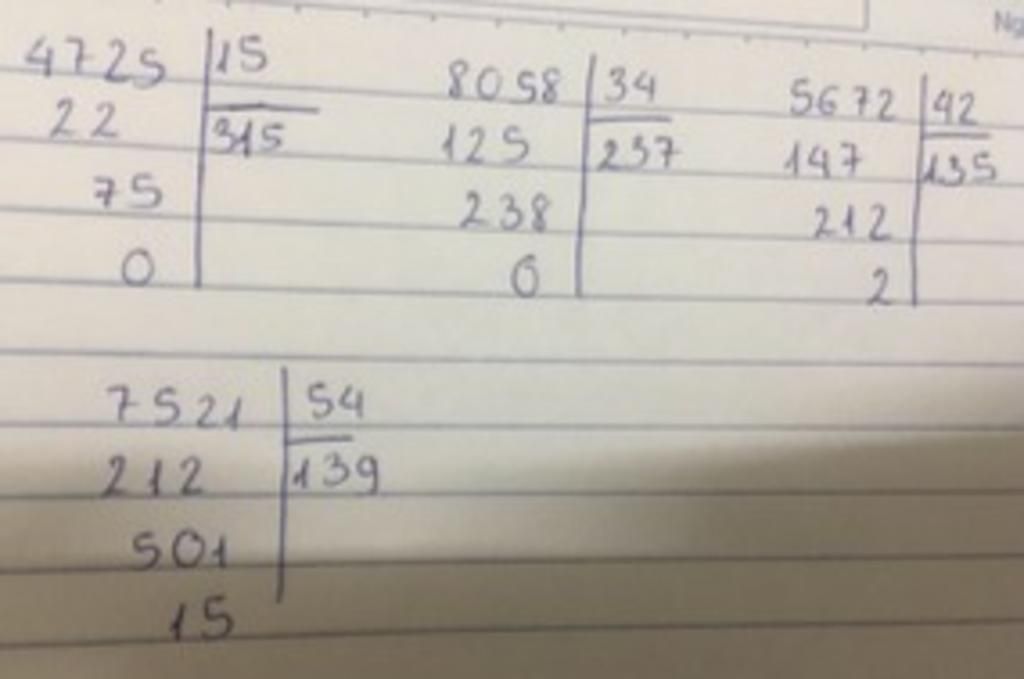 4725 15
22 315
75
0
8058 34
125 237
238
0
5672 42
147 135
212
2
7521 54
212 139
501
15